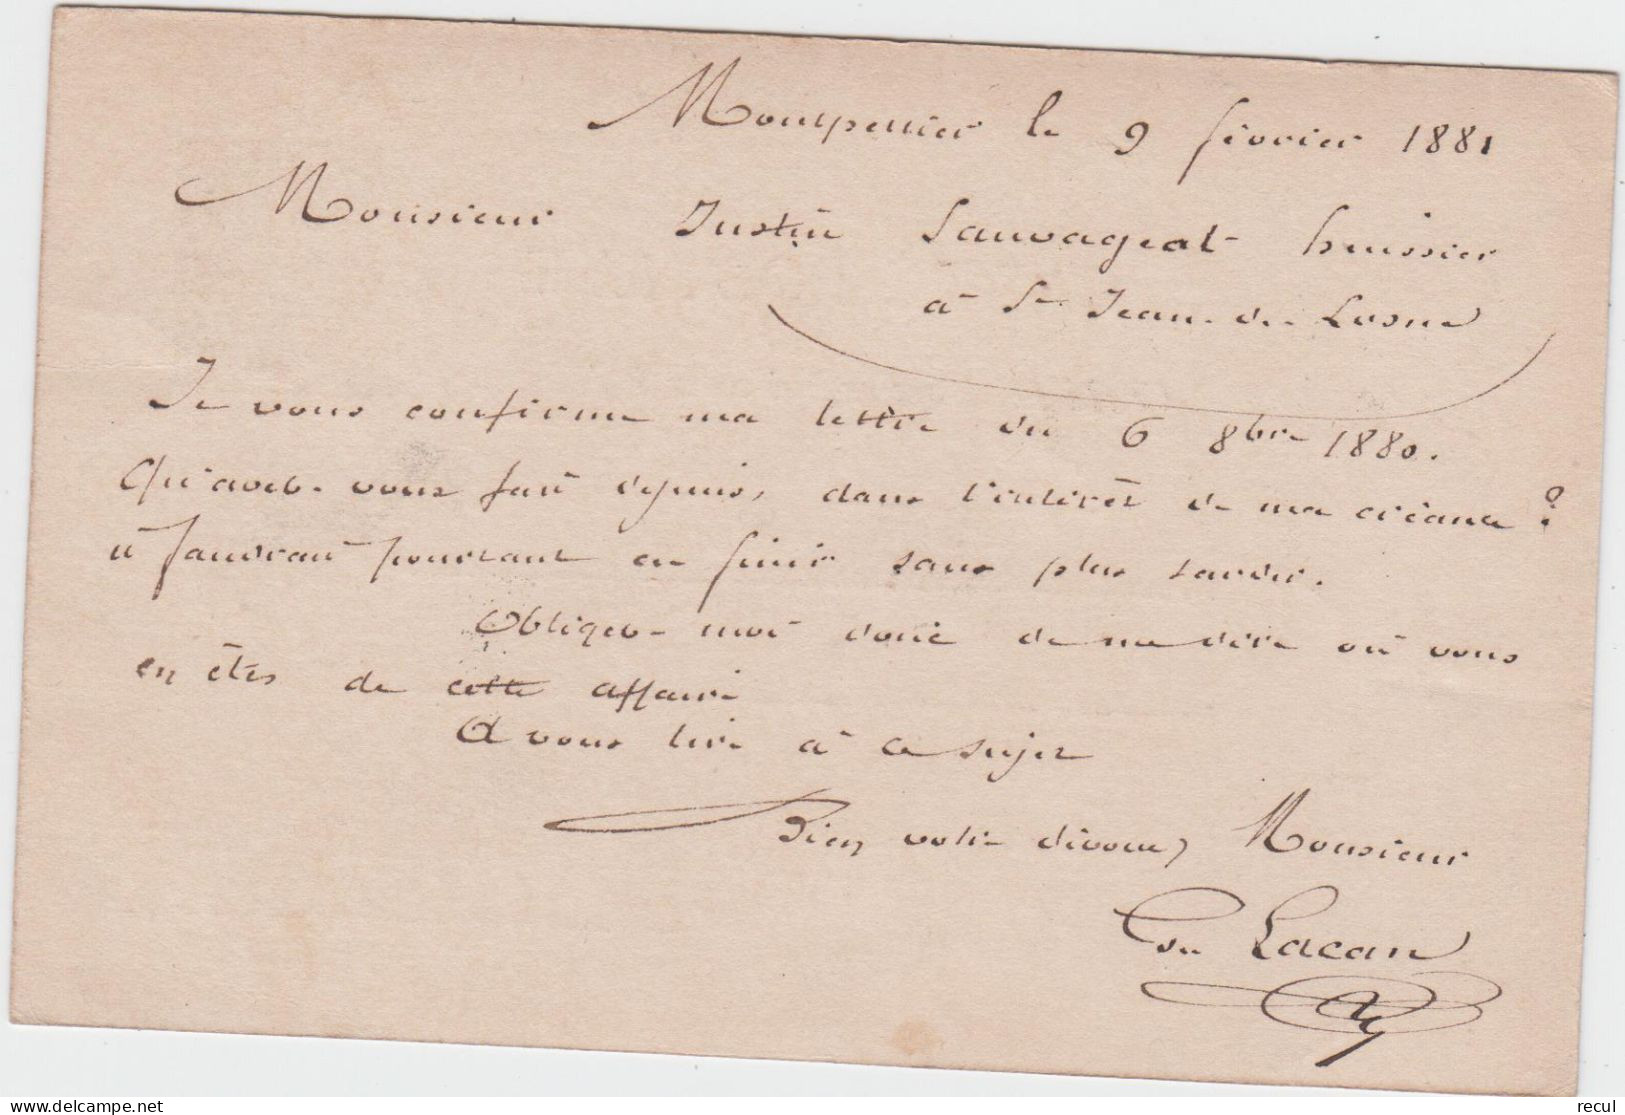 Montpellier le 9 février 1881
Monsieur Justin Sauvageot huissier
à St Jean-de-Losne
Je vous confirme ma lettre du 6 8bre 1880.
Qu'avez-vous fait depuis, dans l'intérêt de ma créance ?
il faudrait pourtant en finir sans plus tarder.
Obligez-moi donc de me dire où vous
en êtes de cette affaire
A vous lire à ce sujet
Bien votre dévoué, Monsieur
Lacan
delcampe.net
recul